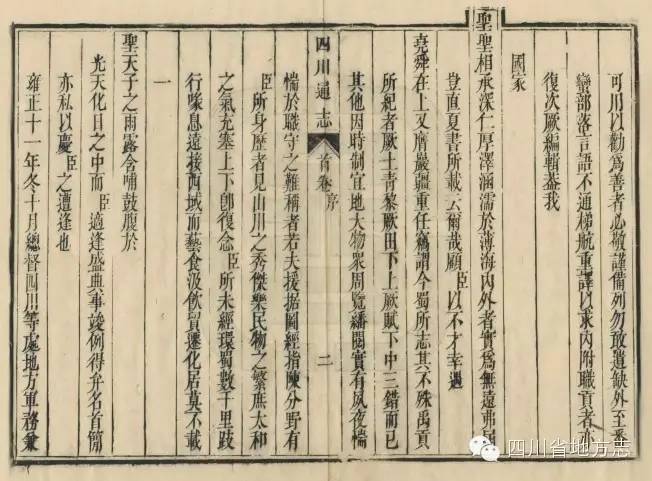 可用以勸為善者必敬謹備列勿敢遺缺外至番
蠻部落言語不通梯航重譯以求內附職貢者亦
復次厥編輯葢我
國家
聖聖相承深仁厚澤涵濡於薄海內外者實為無遠弗屆
豈直夏書所載云爾哉顧臣以不才幸遇
堯舜在上又膺嚴疆重任竊謂今蜀所志其不殊禹貢
所紀者厥土青黎厥田下上厥賦下中三錯而已
其他因時制宜地大物衆周覽繙閱實有夙夜惴
四川通志
首卷
序
二
惴於職守之難稱者若夫援据圖經指陳分野有
臣所身歷者見山川之秀傑樂民物之繁庶太和
之氣充塞上下卽復念臣所未經環蜀數千里跂
行喙息遠接西域而藝食汲飲貿遷化居莫不載
一
聖天子之雨露含哺鼓腹於
光天化日之中而臣適逢盛典事竣例得弁名首簡
亦私以慶臣之遭逢也
雍正十一年冬十月總督四川等處地方軍務兼
四川省地方志